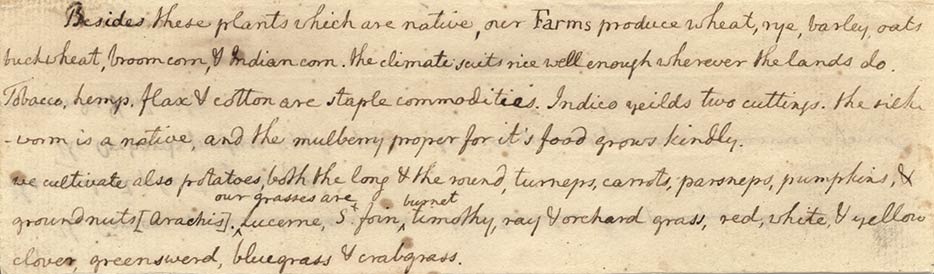 Besides these plants which are native, our Farms produce wheat, rye, barley, oats
buckwheat, broomcorn, & Indian corn. the climate suits rice well enough wherever the lands do.
Tobacco, hemp. flax & cotton are staple commodities. Indico yeilds two cuttings. the silk
-worm is a native, and the mulberry proper for it's food grows kindly.
we cultivate also potatoes, both the long & the round, turneps, carrots, parsneps, pumpkins, &
our grasses are burnet
groundnuts [Arachis]. ^ Lucerne, St. foin, ^ timothy, ray & orchard grass, red, white, & yellow
clover, greenswerd, bluegrass & crabgrass.